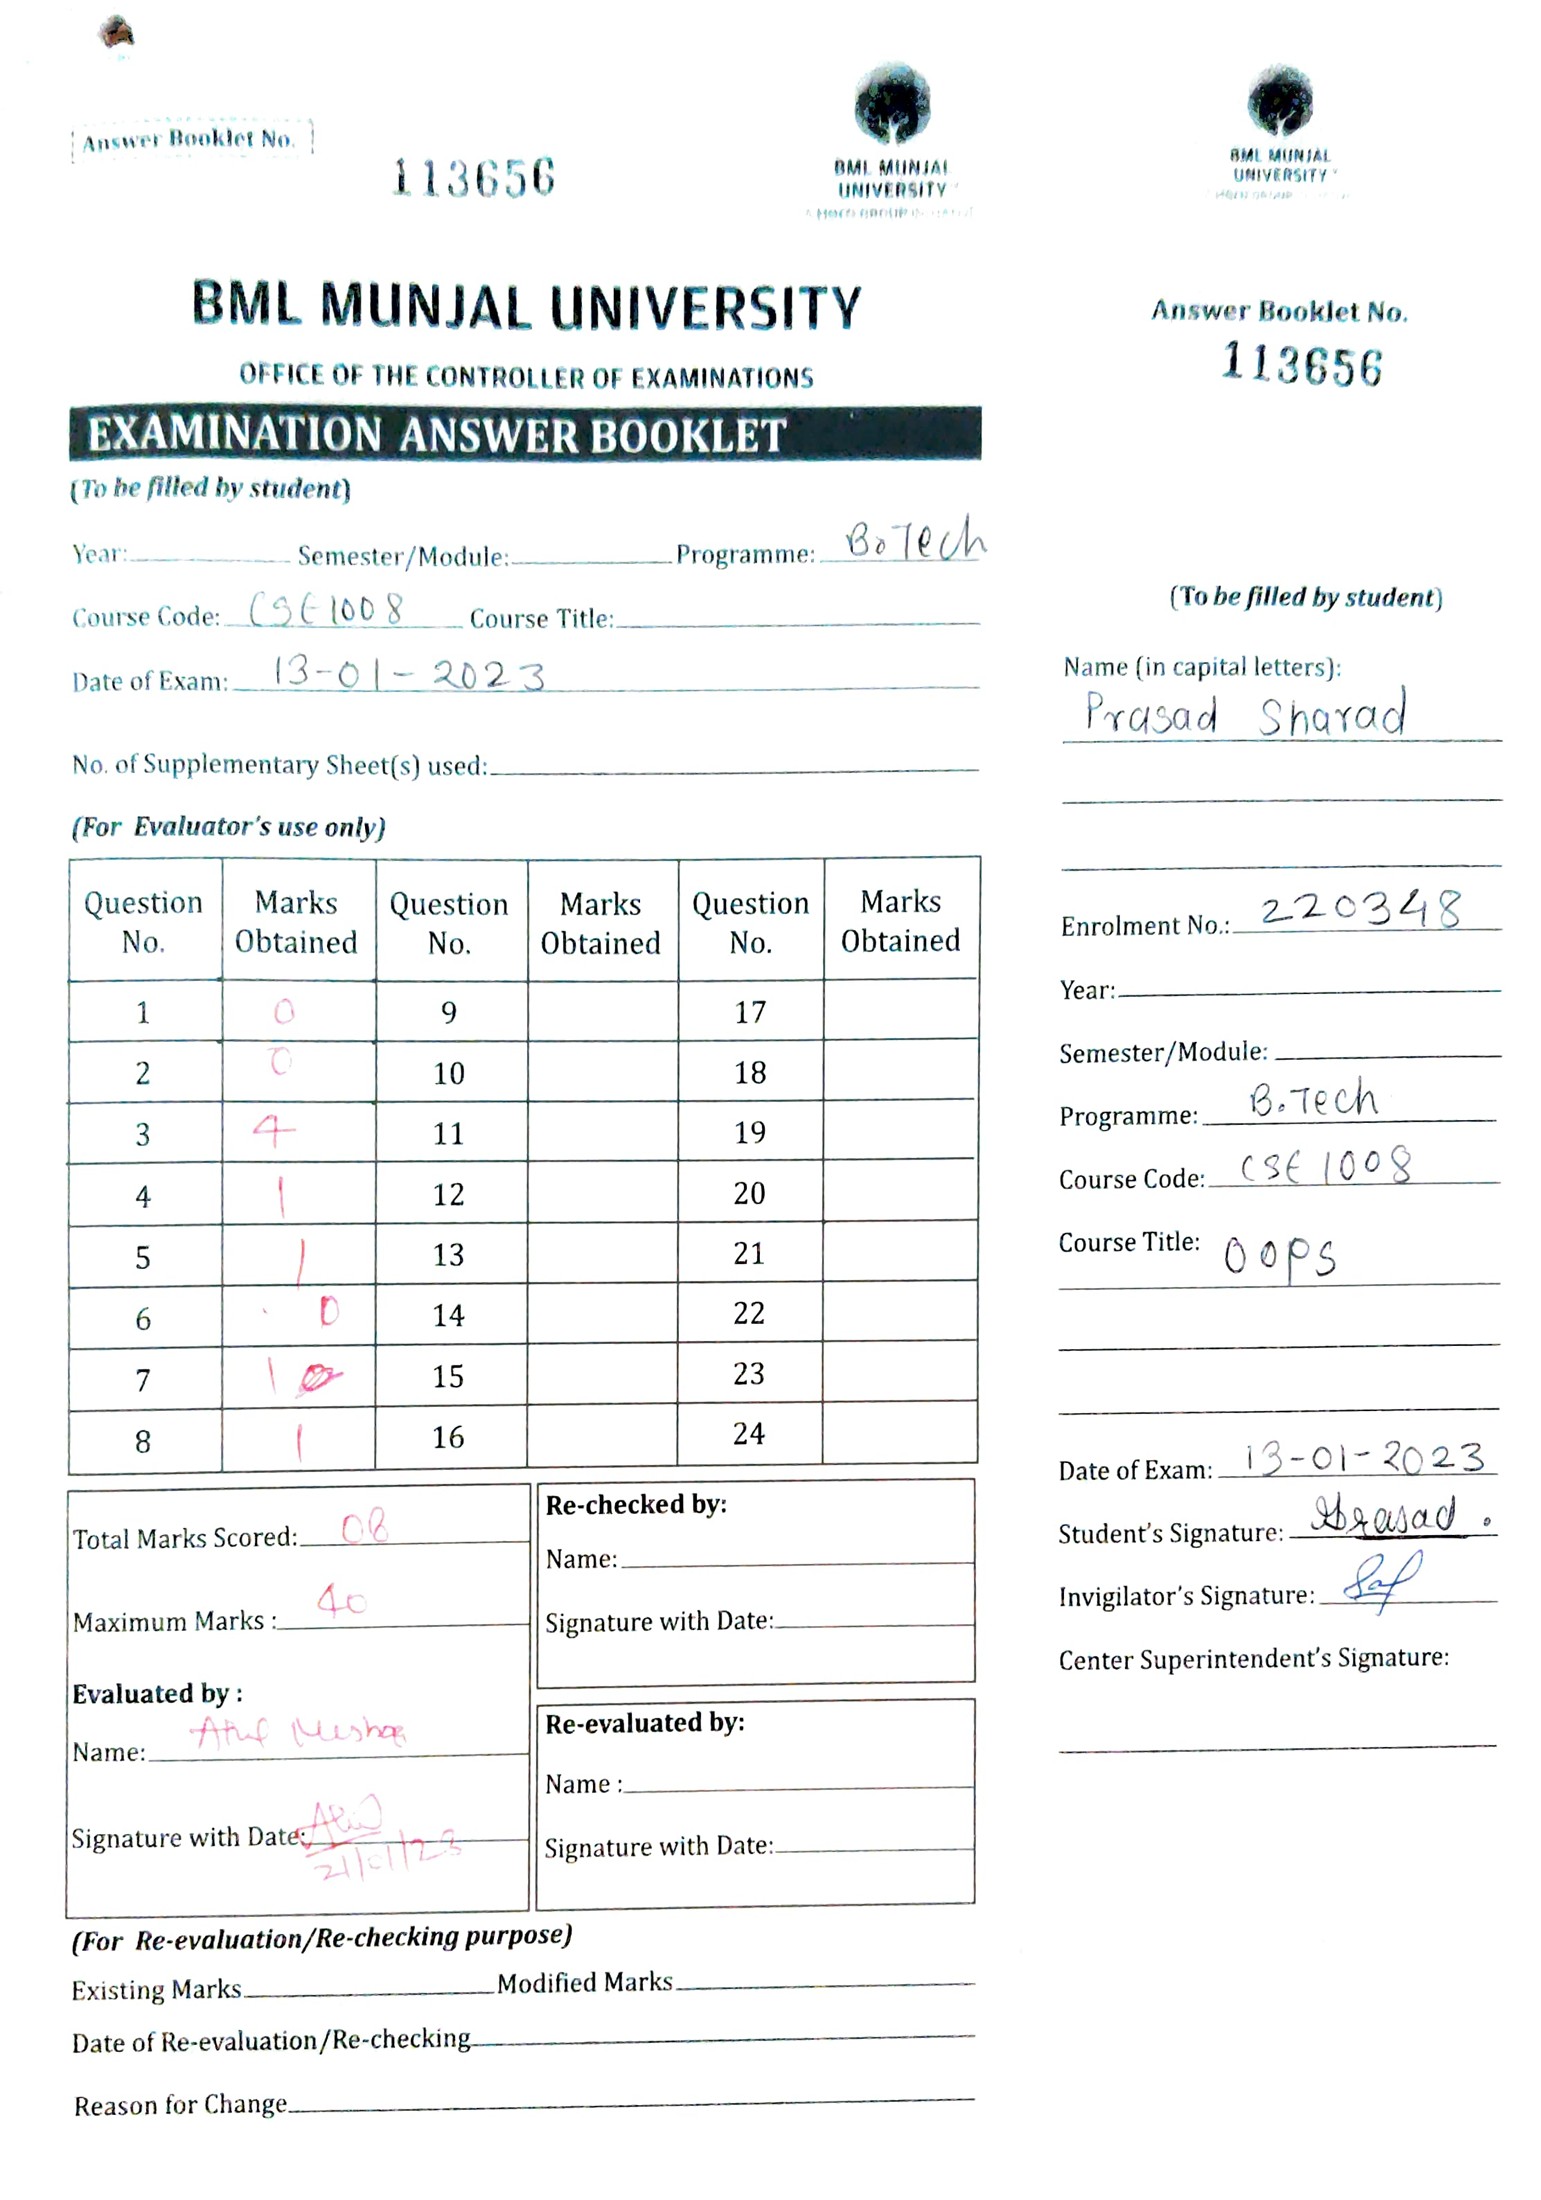 Answer Booklet No.
113656
BML MUNJAL
UNIVERSITY
BML MUNJAL UNIVERSITY
OFFICE OF THE CONTROLLER OF EXAMINATIONS
EXAMINATION ANSWER BOOKLET
(To be filled by student)
Year: Semester/Module: Programme: B.Tech
Course Code: CSE1008 Course Title:
Date of Exam: 13-01-2023
No. of Supplementary Sheet(s) used:
(For Evaluator's use only)
Question No. Marks Obtained Question No. Marks Obtained Question No. Marks Obtained
1 0 9 17
2 0 10 18
3 4 11 19
4 1 12 20
5 1 13 21
6 0 14 22
7 1 15 23
8 1 16 24
Total Marks Scored: 08
Maximum Marks : 40
Evaluated by :
Name:
Signature with Date: 21/01/23
Re-checked by:
Name:
Signature with Date:
Re-evaluated by:
Name :
Signature with Date:
(For Re-evaluation/Re-checking purpose)
Existing Marks Modified Marks
Date of Re-evaluation/Re-checking
Reason for Change
BML MUNJAL
UNIVERSITY
Answer Booklet No.
113656
(To be filled by student)
Name (in capital letters):
Prasad Sharad
Enrolment No.: 220348
Year:
Semester/Module:
Programme: B.Tech
Course Code: CSE1008
Course Title: OOPS
Date of Exam: 13-01-2023
Student's Signature: Prasad.
Invigilator's Signature:
Center Superintendent's Signature: